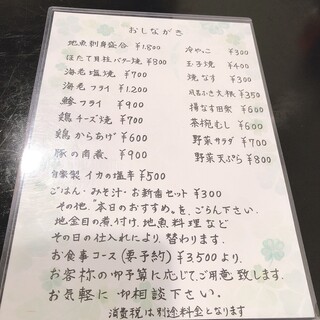 おしながき
地魚刺身盛合 ¥1,800
ほたて貝柱バター焼 ¥800
海老塩焼 ¥700
海老フライ ¥1,200
鯵フライ ¥900
鶏チーズ焼 ¥700
鶏からあげ ¥600
豚の角煮 ¥900
自家製イカの塩辛 ¥500
冷やっこ ¥300
玉子焼 ¥400
焼なす ¥300
風呂ふき大根 ¥350
揚なす田楽 ¥600
茶椀むし ¥600
野菜サラダ ¥700
野菜天ぷら ¥800
ごはん・みそ汁・お新香セット ¥300
その他"本日のおすすめ"をごらん下さい
地金目の煮付け、地魚料理など
その日の仕入れにより、替わります。
お食事コース(要予約) ¥3,500より。
お客様の御予算に応じてご用意致します。
お気軽に御相談下さい。
消費税は別途料金となります